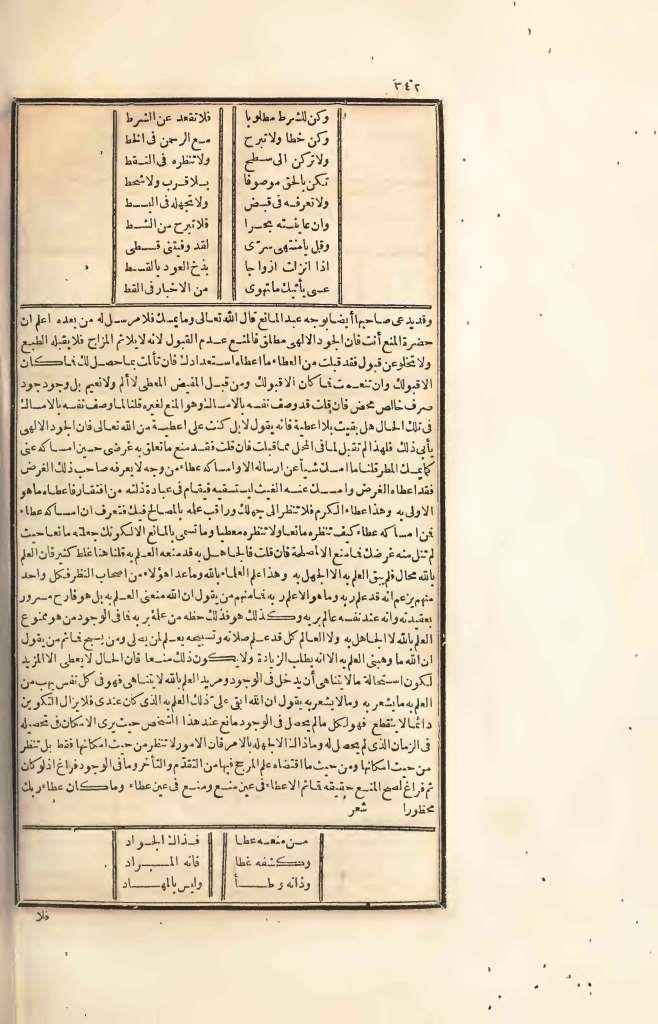 ٣٤٢
وكن للشرط مطلوبا فلا تقعد عن الشرط
وكن خطا ولا تبرح مع الرحمن فى الخط
ولا تركن الى سطح ولا تنظره فى النقط
تكن بالحق موصوفا بلا قرب ولا شحط
ولا تعرفه فى قبض ولا تجهله فى البسط
وان عاينته بحرا فلا تبرح من الشط
وقل يا منتهى سرّى لقد وفيتنى قسطى
اذا انزلت ازواجا بذخ العود بالقسط
عسى يأتيك ما تهوى من الاخبار فى القط
وقد يدعى صاحبها أيضا بوجه عبد المانع قال الله تعالى وما يمسك فلا مرسل له من بعده اعلم ان
حضرة المنع أنت فان الجود الالهى مطلق فالمنع عدم القبول لانه لا يلائم المزاج فلا يقبله الطبع
ولا تخلو عن قبول فقد قبلت من العطاء ما اعطاه استعدادك فان تألمت بما حصل لك فما كان
الا قبولك وان تنعمت فما كان الا قبولك ومن قبل المفيض المعطى لا ألم ولا نعيم بل وجود جود
صرف خالص محض فان قلت قد وصف نفسه بالامساك وهو المنع لغيره قلنا لما وصف نفسه بالامساك
فى تلك الحال هل بقيت بلا اعطية فانه يقول لا بل كنت على اعطية من الله تعالى فان الجود الالهى
يأبى ذلك فلهذا لم تقبل لما فى المحل مما قبلت فان قلت فقد منع ما تعلق به غرضى حسين امساكه عنى
كما يمسك المطر قلنا ما امسك شيأ عن ارساله الا وامساكه عطاء من وجه لا يعرفه صاحب ذلك الغرض
فقد اعطاه الغرض وامسك عنه الغيث ليستسقيه فيقام فى عبادة ذلته من افتقار فاعطاه ما هو
الاولى به وهذا عطاء الكرم فلا تنظر الى جهلك وراقب علمه بالمصالح فيك فتعرف ان امساكه عطاء
فمن امساكه عطاء كيف تنظره مانعا ولا تنظره معطيا وما تسمى بالمانع الا لكونك جعلته مانعا حيث
لم تنل منه غرضك فما منع الا لمصلحة فان قلت فالجاهل به قد منعه العلم به قلنا هنا غلط كثير فان العلم
بالله محال فلم يبق العلم به الا الجهل به وهذا علم العلماء بالله وما عدا هؤلاء من اصحاب النظر فكل واحد
منهم يزعم انه قد علم ربه وما هو الا علم ربه فما منهم من يقول ان الله منعنى العلم به بل هو فارح مسرور
بعقيدته وانه عند نفسه عالم بربه وكذلك هو فذلك حظه من علمه بربه فما فى الوجود من هو ممنوع
العلم بالله لا الجاهل به ولا العالم كل قد علم صلاته وتسبيحه يعلم لمن يصلى ومن يسبح فما ثم من يقول
ان الله ما وهبنى العلم به الا انه يطلب الزيادة ولا يكون ذلك منعا فان الحال لا يعطى الا المزيد
لكون استحالة ما لا يتناهى أن يدخل فى الوجود ومريد العلم بالله لا يتناهى فهو فى كل نفس يهب من
العلم به ما يشعر به وما لا يشعر به يقول ان الله ابقى علىّ ذلك العلم به الذى كان عندى فلا يزال التكوين
دائما لا ينقطع فهو لكل ما لم يحصل فى الوجود مانع عند هذا الشخص حيث يرى الامكان فى تحصيله
فى الزمان الذى لم يحصل له وما ذاك الا لجهله بالامر فان الامور لا تنظر من حيث امكانها فقط بل تنظر
من حيث امكانها ومن حيث ما اقتضاه علم المرجح فيها من التقدّم والتأخر وما فى الوجود فراغ اذ لو كان
ثم فراغ لصح المنع حقيقة فما ثم الا عطاء فى عين منع ومنع فى عين عطاء وما كان عطاء ربك
محظورا شعر
من منعه عطا فذاك الجواد
وكشفه غطا فانه المراد
وذاته وطأ وليس بالمهاد
فلا